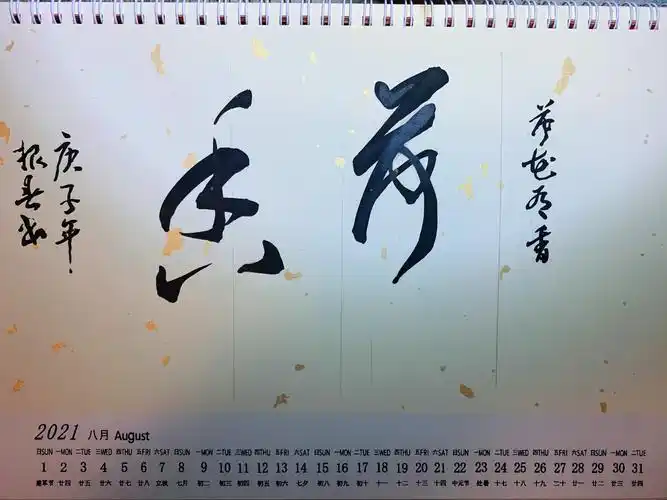 荷花有香
荷香
庚子年
2021 八月 August
日SUN 一MON 二TUE 三WED 四THU 五FRI 六SAT 日SUN 一MON 二TUE 三WED 四THU 五FRI 六SAT 日SUN 一MON 二TUE 三WED 四THU 五FRI 六SAT 日SUN 一MON 二TUE 三WED 四THU 五FRI 六SAT 日SUN 一MON 二TUE
1 2 3 4 5 6 7 8 9 10 11 12 13 14 15 16 17 18 19 20 21 22 23 24 25 26 27 28 29 30 31
建军节 廿四 廿五 廿六 廿七 廿八 立秋 七月 初二 初三 初四 初五 初六 七夕 初八 初九 初十 十一 十二 十三 十四 中元节 处暑 十七 十八 十九 二十 廿一 廿二 廿三 廿四